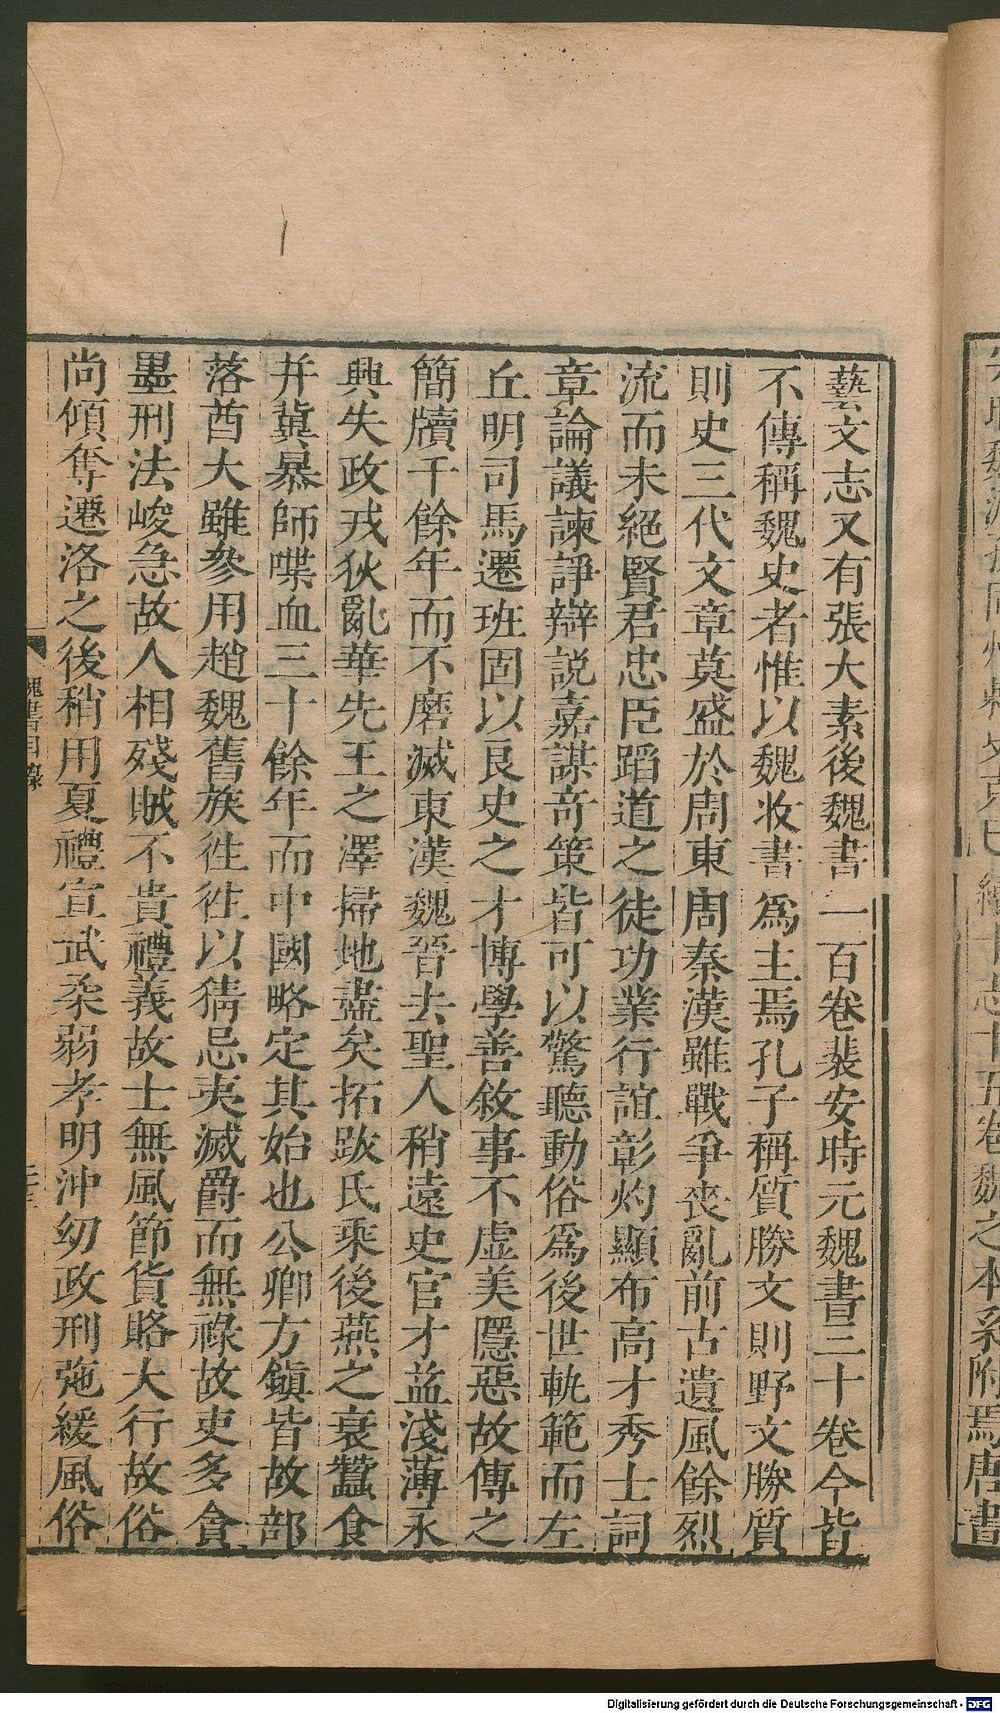 藝文志又有張大素後魏書一百卷裴安時元魏書三十卷今皆
不傳稱魏史者惟以魏收書爲主焉孔子稱質勝文則野文勝質
則史三代文章莫盛於周東周秦漢雖戰爭喪亂前古遺風餘烈
流而未絕賢君忠臣蹈道之徒功業行誼彰灼顯布高才秀士詞
章論議諫諍辯説嘉謀竒策皆可以驚聽動俗爲後世軌範而左
丘明司馬遷班固以良史之才博學善敘事不虛美隱惡故傳之
簡牘千餘年而不磨滅東漢魏晉去聖人稍遠史官才益淺薄永
興失政戎狄亂華先王之澤掃地盡矣拓跋氏乘後燕之衰蠶食
并冀暴師喋血三十餘年而中國略定其始也公卿方鎮皆故部
落酋大雖參用趙魏舊族徃徃以猜忌夷滅爵而無祿故吏多貪
墨刑法峻急故人相殘賊不貴禮義故士無風節貨賂大行故俗
尚傾奪遷洛之後稍用夏禮宣武柔弱孝明沖幼政刑弛緩風俗
魏書目錄
五卷魏之本系附焉唐書
Digitalisierung gefördert durch die Deutsche Forschungsgemeinschaft - DFG